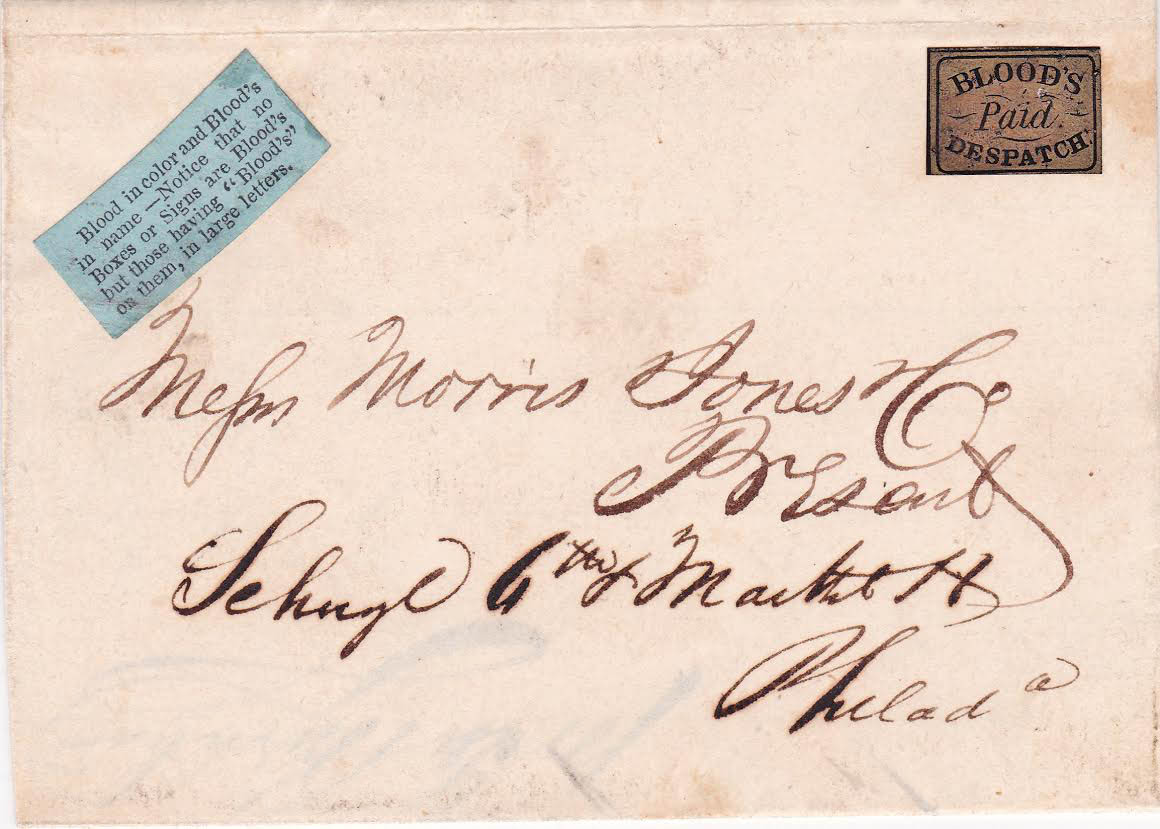 Blood in color and Blood's
in name—Notice that no
Boxes or Signs are Blood's
but those having "Blood's"
on them, in large letters.
BLOOD'S
Paid
DESPATCH
Messrs Morris Jones & Co
Present
Schuyl 6th & Market St
Philada